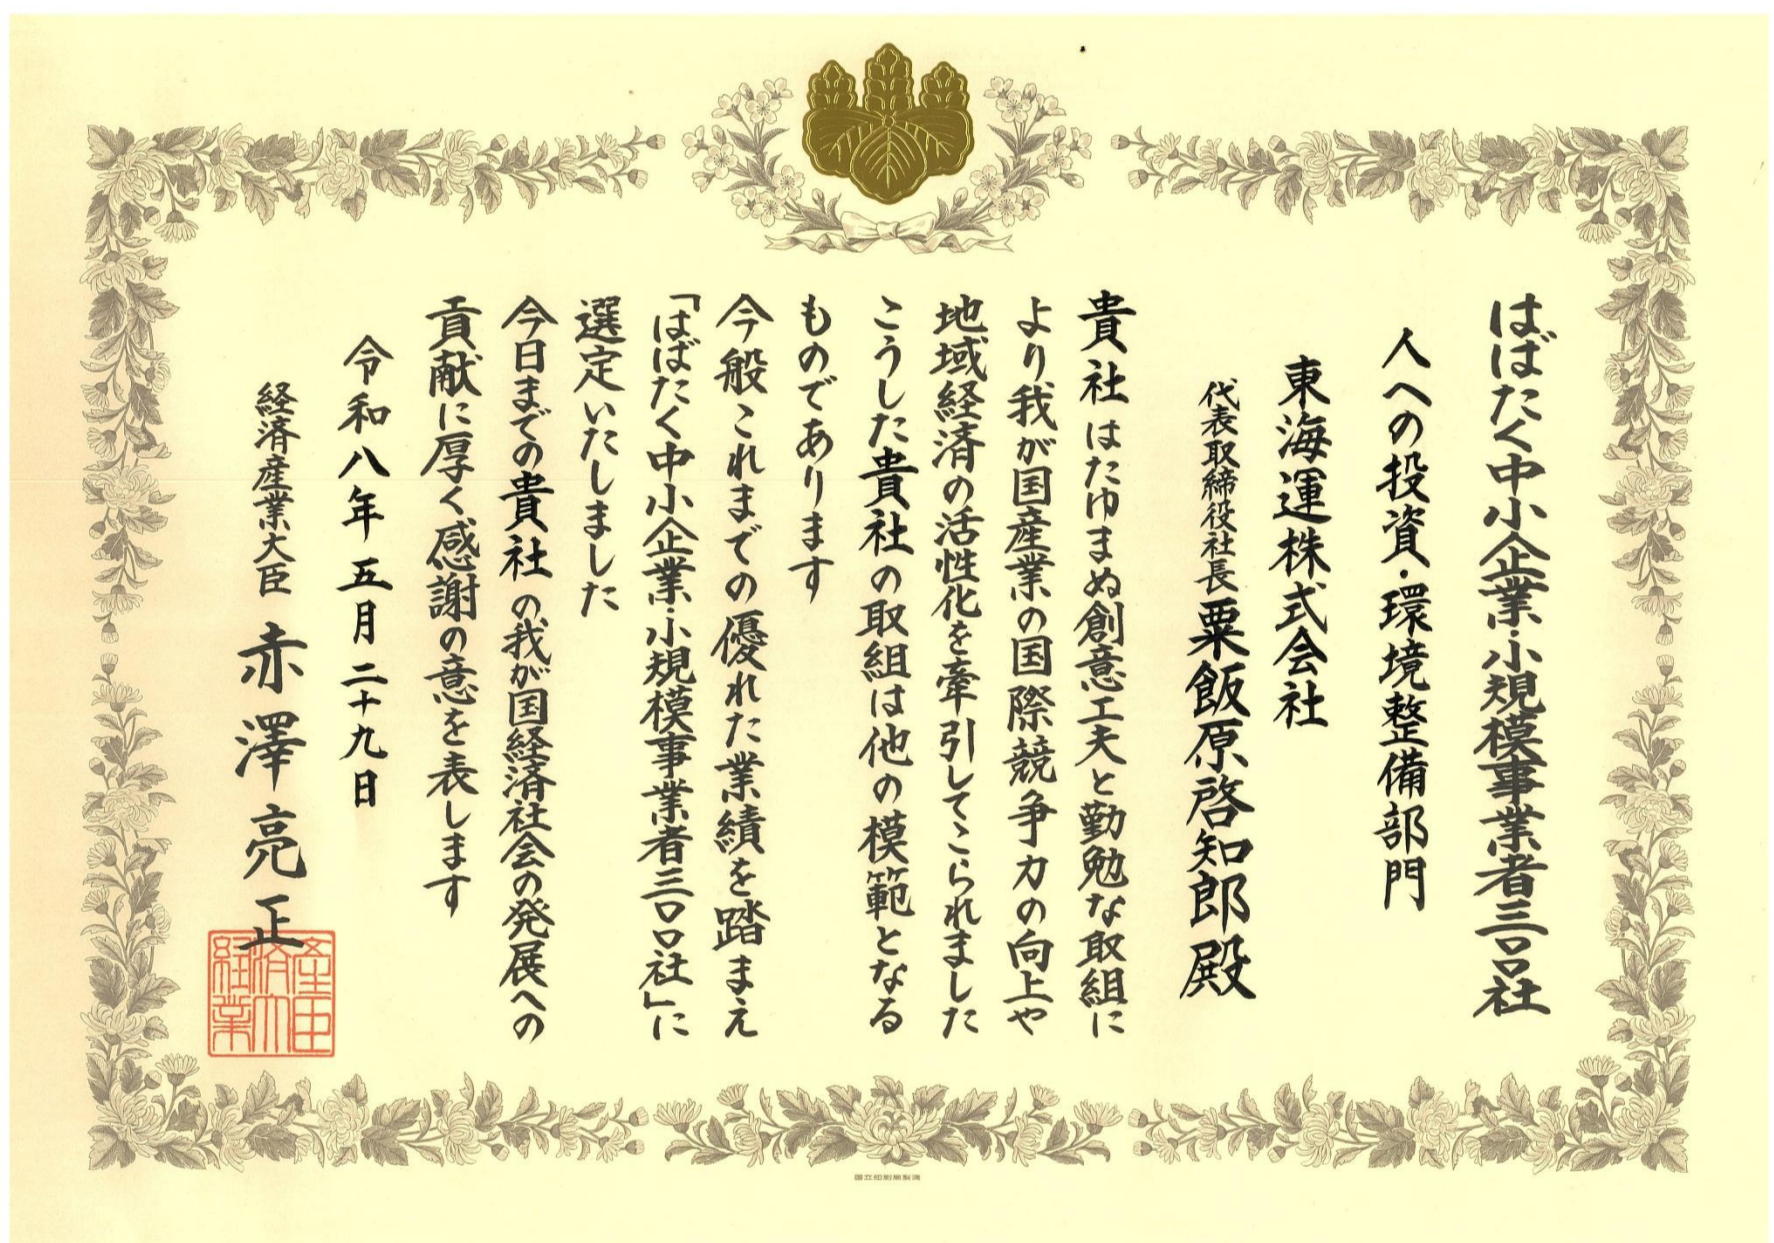 はばたく中小企業・小規模事業者三〇〇社
人への投資・環境整備部門
東海運株式会社
代表取締役社長 粟飯原啓知郎 殿
貴社はたゆまぬ創意工夫と勤勉な取組に
より我が国産業の国際競争力の向上や
地域経済の活性化を牽引してこられました
こうした貴社の取組は他の模範となる
ものであります
今般これまでの優れた業績を踏まえ
「はばたく中小企業・小規模事業者三〇〇社」に
選定いたしました
今日までの貴社の我が国経済社会の発展への
貢献に厚く感謝の意を表します
令和八年五月二十九日
経済産業大臣 赤澤亮正
経済産業大臣
国立印刷局製造